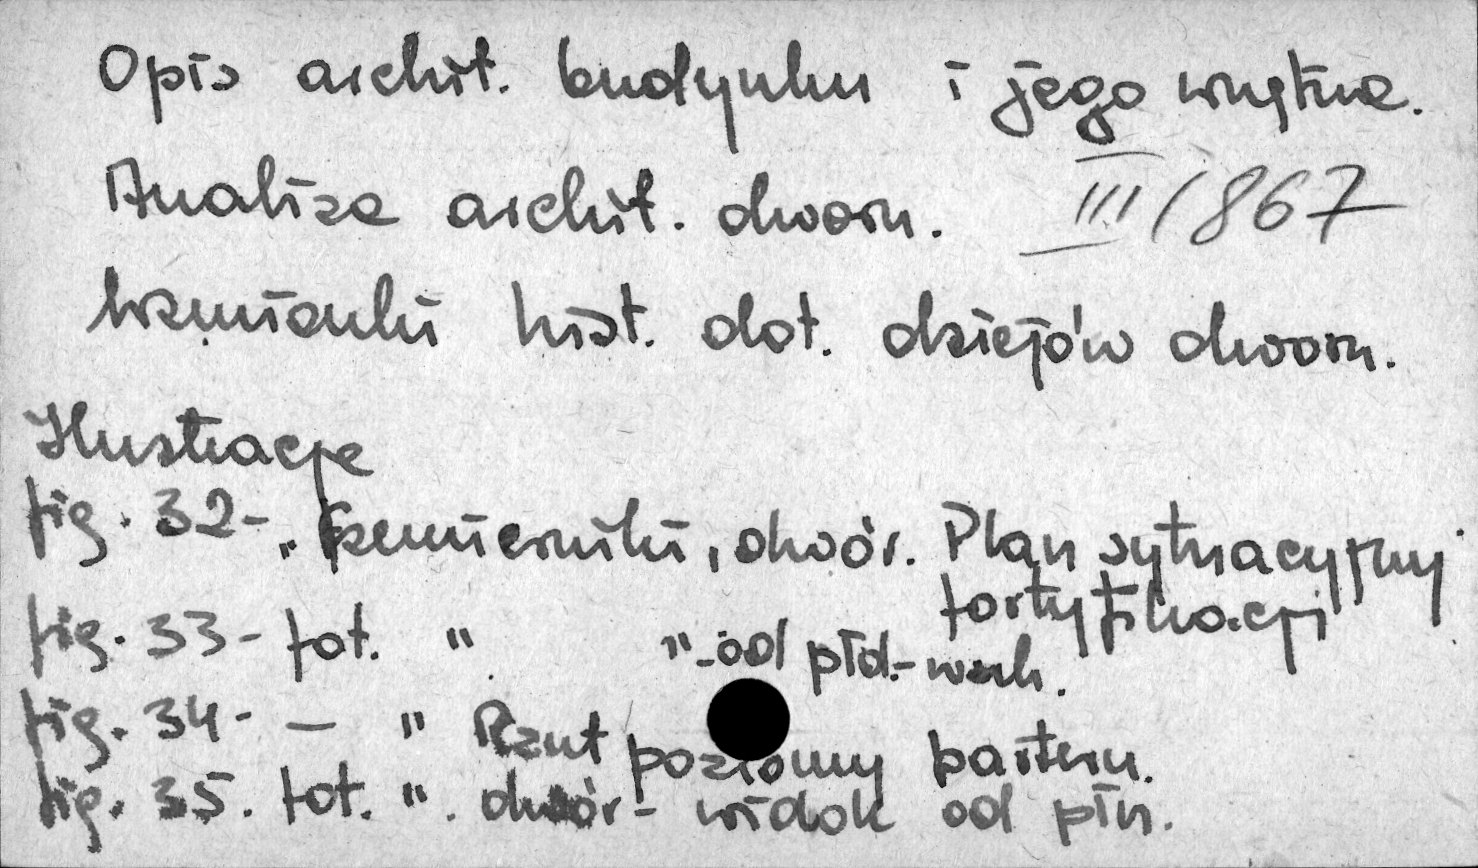 Opis archit. budynku i jego wnętrza.
Analiza archit. dworu. III/867
Wzmianki hist. dot. dziejów dworu.
Ilustracje
fig. 32- „Czemierniki, dwór. Plan sytuacyjny
fortyfikacji
fig. 33- fot. " "-od płd.-wsch.
fig. 34- — " Rzut poziomy parteru.
fig. 35. fot. ". dwór- widok od płn.